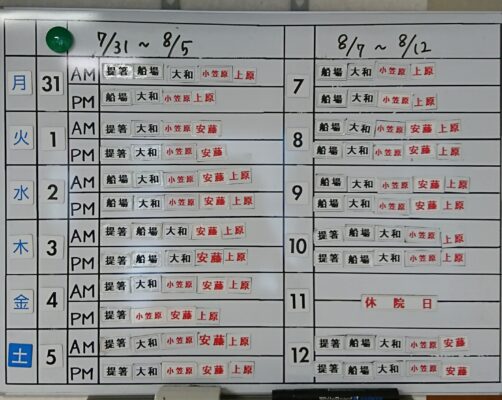 7/31 ~ 8/5 8/7 ~ 8/12
月 31 AM 提箸 船場 大和 小笠原 上原 7 船場 大和 小笠原 上原
PM 船場 大和 小笠原 上原 船場 大和 小笠原 上原
火 1 AM 提箸 大和 小笠原 安藤 8 船場 大和 小笠原 安藤
PM 提箸 大和 小笠原 安藤 船場 大和 小笠原 安藤
水 2 AM 船場 大和 小笠原 安藤 上原 9 船場 大和 小笠原 安藤 上原
PM 船場 大和 小笠原 安藤 上原 船場 大和 小笠原 安藤 上原
木 3 AM 提箸 船場 大和 安藤 上原 10 提箸 船場 大和 小笠原 上原
PM 提箸 船場 大和 安藤 上原 提箸 船場 大和 小笠原 上原
金 4 AM 提箸 大和 小笠原 安藤 上原 11 休院日
PM 提箸 小笠原 安藤 上原
土 5 AM 提箸 大和 小笠原 安藤 上原 12 提箸 船場 大和 小笠原 安藤
PM 提箸 大和 小笠原 安藤 上原 提箸 船場 大和 安藤